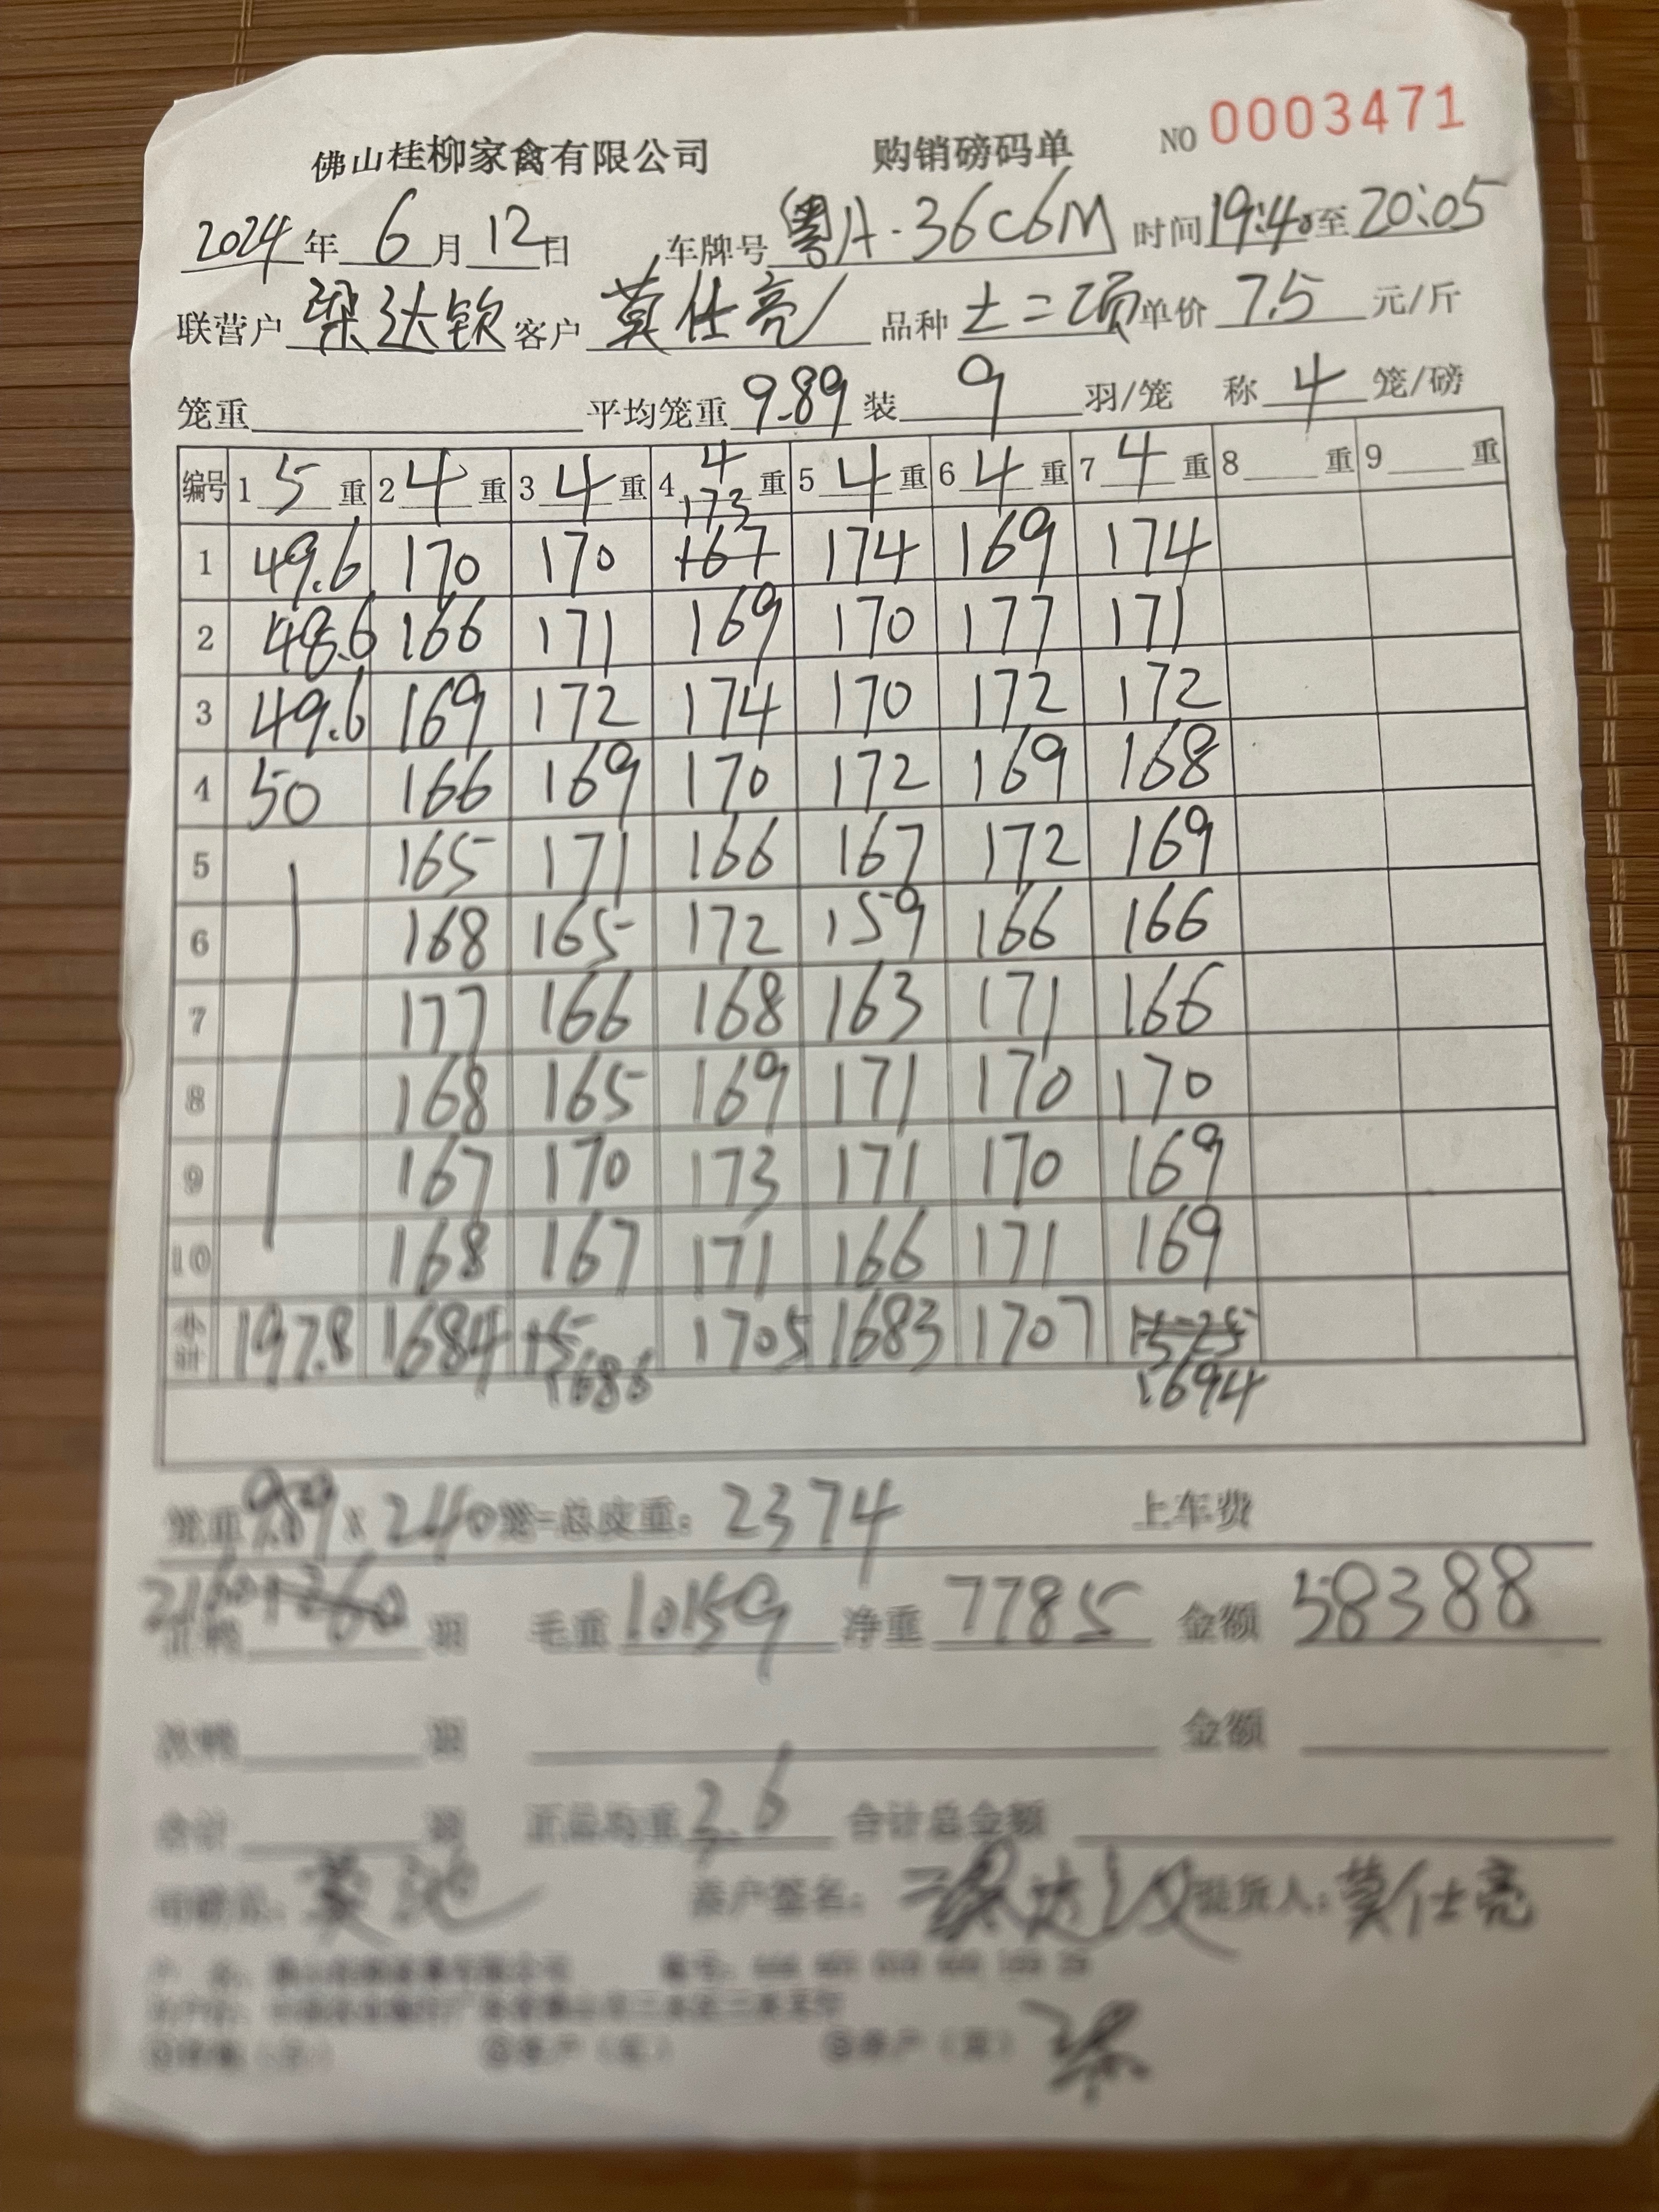 佛山桂柳家禽有限公司 购销磅码单 NO 0003471
2024年6月12日 车牌号粤A·36C6M 时间19:40至20:05
联营户梁达钦 客户莫仕亮 品种土二项 单价7.5元/斤
笼重 平均笼重9.89 装9羽/笼 称4笼/磅
编号 1 5重 2 4重 3 4重 4 4重 5 4重 6 4重 7 4重 8 重 9 重
173
1 49.6 170 170 167 174 169 174
2 48.6 166 171 169 170 177 171
3 49.6 169 172 174 170 172 172
4 50 166 169 170 172 169 168
5 165 171 166 167 172 169
6 168 165 172 159 166 166
7 177 166 168 163 171 166
8 168 165 169 171 170 170
9 167 170 173 171 170 169
10 168 167 171 166 171 169
小计 197.8 1684 1705 1683 1707
1686 1694
笼重9.89×240笼=总皮重:2374 上车费
2160 毛重10159 净重7785 金额58388
金额
合计 正品均重3.6 合计总金额
客户签名: 提货人:莫仕亮